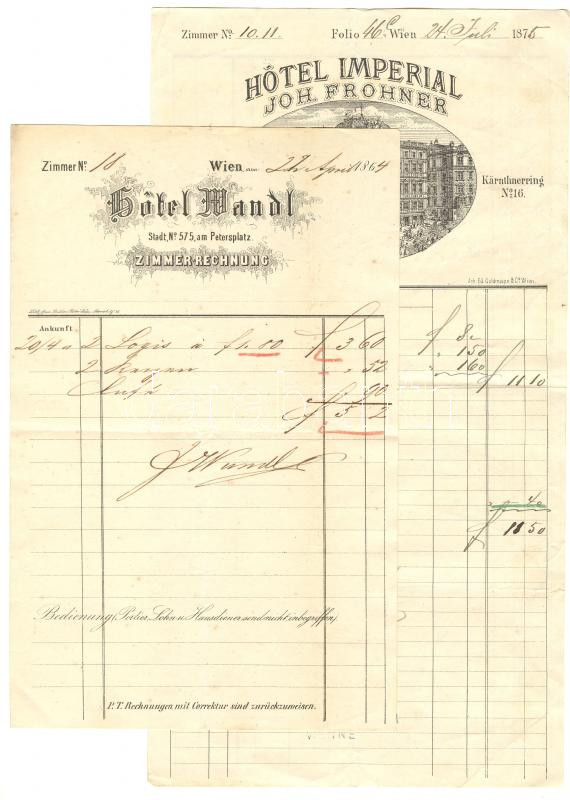 Zimmer No. 10.11. Folio 46 Wien 24. Juli 1875
HÔTEL IMPERIAL
JOH. FROHNER
Kärnthnerring
No. 16.
Joh. Ed. Goldmann & Co. Wien.
f 8.
" 150
" 160
f 11 10
" 40
f 11 50
Zimmer No. 18 Wien, am 22 April 1864
Hôtel Wandl
Stadt, No. 575, am Petersplatz.
ZIMMER-RECHNUNG
Ankunft
20/4 a 2 Logis à f 1.80 f 3 60
2 Kerzen " 52
Café " 90
f 5 2
J Wandl
Bedienung (Portier, Lohn u. Hausdiener sind nicht inbegriffen).
P. T. Rechnungen mit Correktur sind zurückzuweisen.